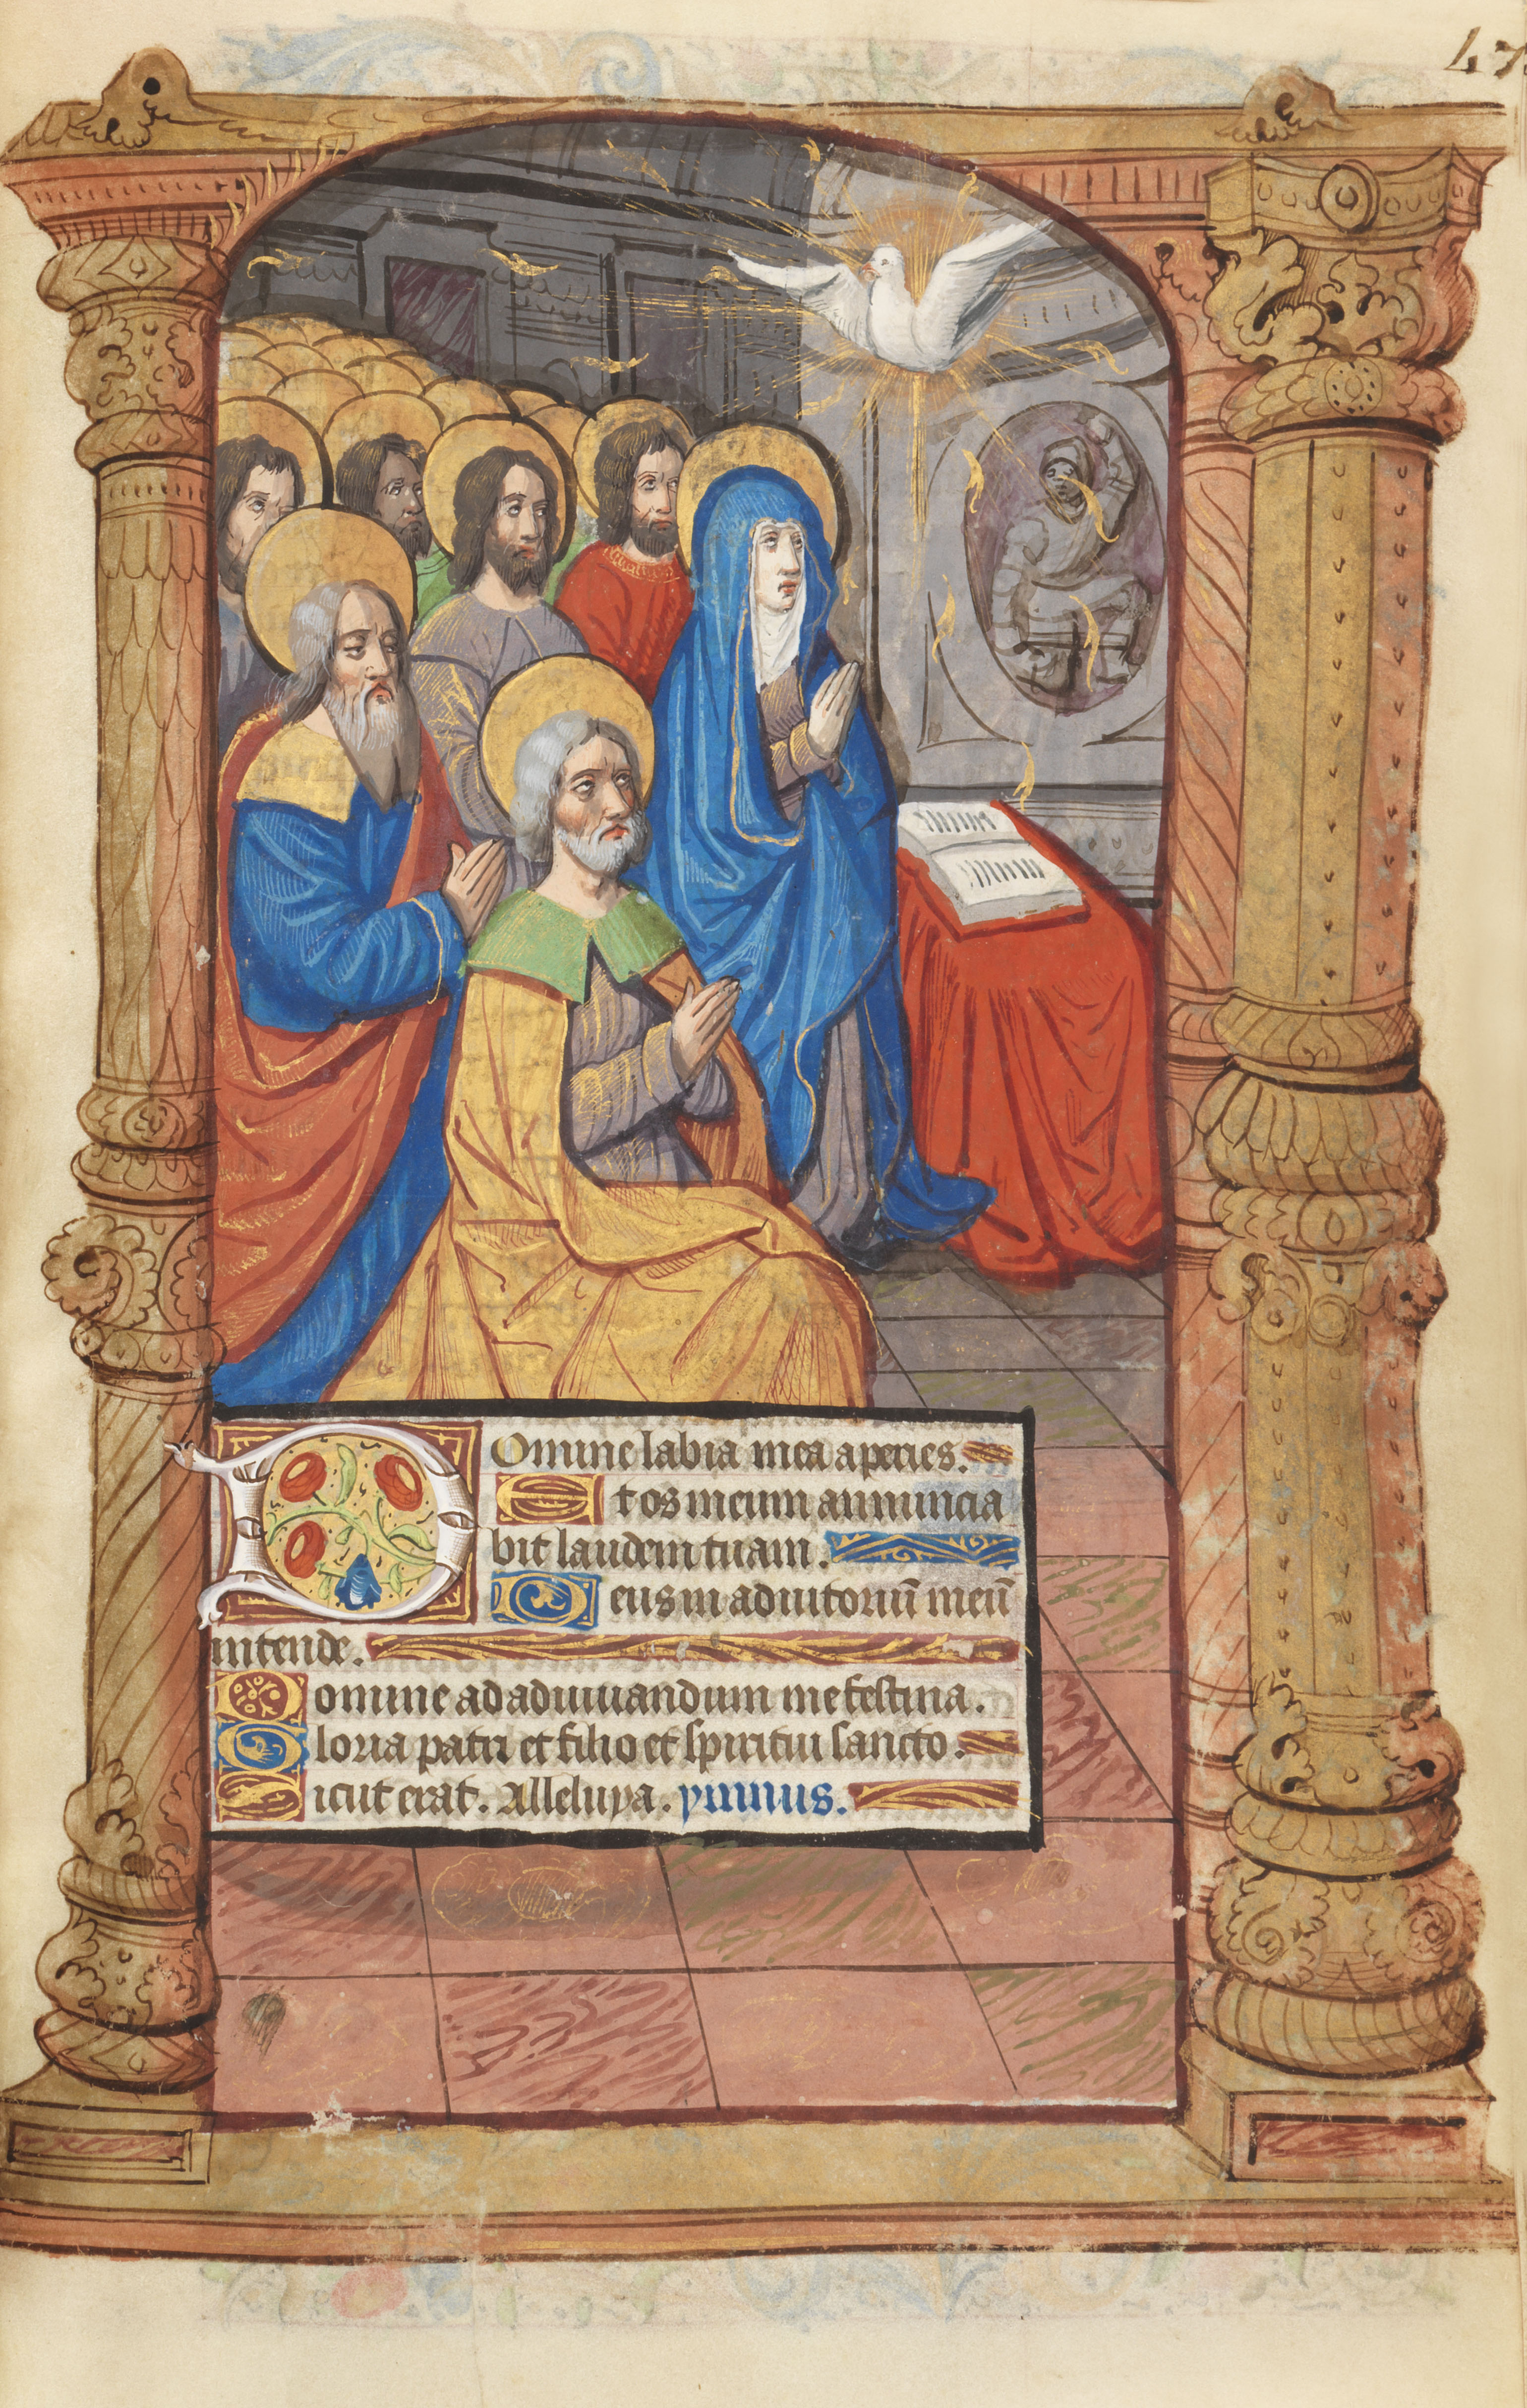 47
Domine labia mea aperies.
Et os meum annuncia
bit laudem tuam.
Deus in adiutoriū meū
intende.
Domine ad adiuuandum me festina.
Gloria patri et filio et spiritui sancto.
Sicut erat. Alleluya. ymnus.